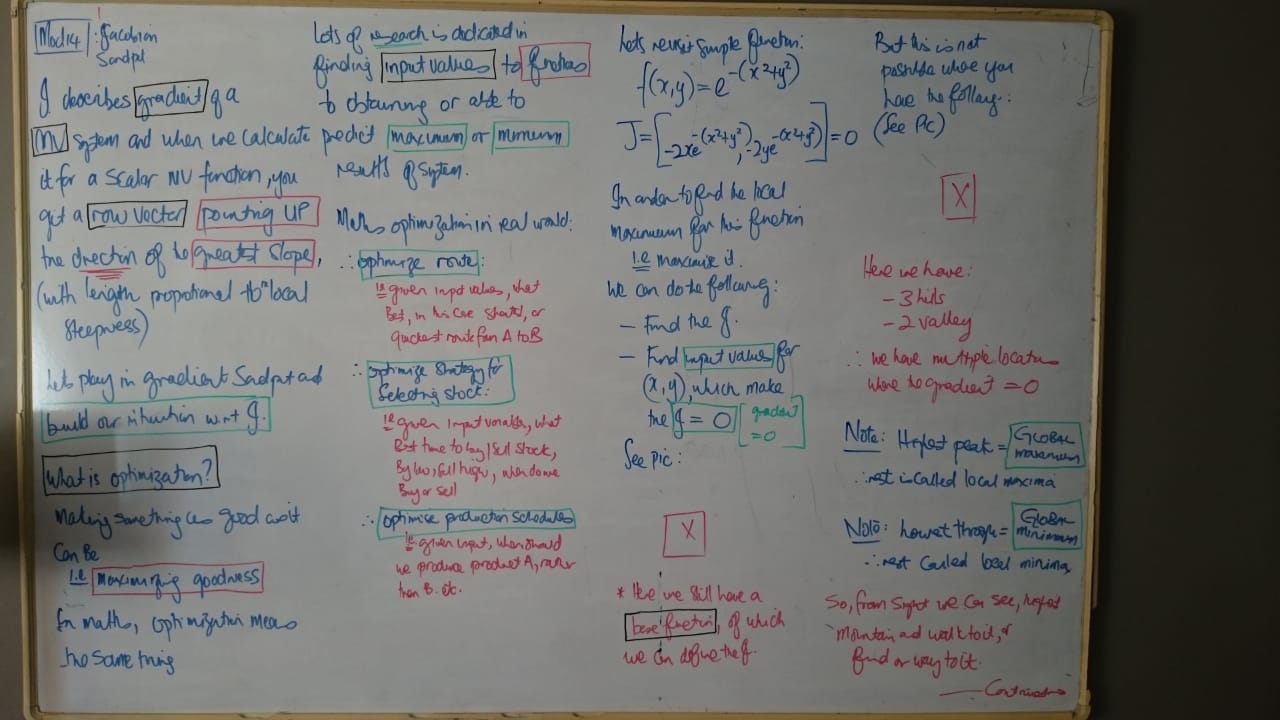 Mod14 : Jacobian
Sandpit
J describes gradient of a
MV system and when we calculate
it for a scalar MV function, you
get a row vector pointing UP
the direction of the greatest slope,
(with length proportional to local
steepness)
Lets play in gradient Sandpit and
build our intuition wrt J.
What is optimization?
Making something as good as it
Can Be
i.e maximizing goodness
In maths, optimization means
the same thing
Lots of research is dedicated in
finding input values to functions
to obtaining or able to
predict maximum or minimum
results of system.
Maths optimization in real world:
∴ optimize route:
ie given input values, what
Best, in this case shortest, or
quickest route from A to B
∴ optimize strategy for
Selecting stock:
ie given input variables, what
Best time to buy/sell stock,
By low, sell high, when do we
Buy or sell
∴ optimise production schedules
ie given input, when should
we produce product A, rather
than B. etc.
Lets revisit simple function:
f(x,y) = e^-(x²+y²)
J = [-2xe^-(x²+y²), -2ye^-(x²+y²)] = 0
In order to find the local
maximum for this function
i.e maximise it.
We can do the following:
- Find the J.
- Find input values for
(x,y), which make
the J = 0 [gradient
= 0]
See Pic:
X
* Here we still have a
base function, of which
we can define the J.
But this is not
possible where you
have the following:
(See Pic)
X
Here we have:
- 3 hills
- 2 valley
∴ we have multiple locations
where the gradient = 0
Note: Highest peak = GLOBAL
maximum
∴ rest is called local maxima
Note: Lowest through = GLOBAL
minimum
∴ rest called local minima
So, from input we can see, highest
mountain and walk to it, or
find or way to it.
— Continued